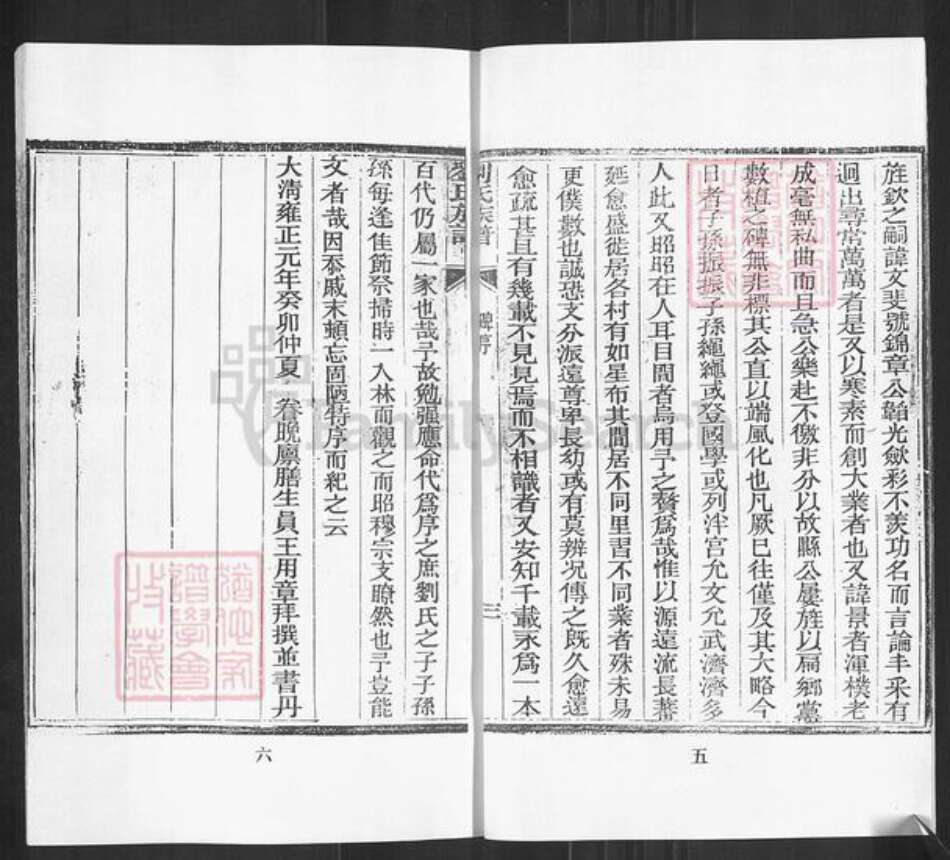 旌欽之嗣諱文斐號錦章公韜光歛彩不羨功名而言論丰采有
迥出尋常萬萬者是又以寒素而創大業者也又諱景者渾樸老
成毫無私曲而且急公樂赴不儌非分以故縣公屢旌以扁鄉黨
數植之磚無非標其公直以端風化也凡厥已往僅及其大略今
日者子孫振振子孫繩繩或登國學或列泮宮允文允武濟濟多
人此又昭昭在人耳目間者烏用予之贅爲哉惟以源遠流長蕃
延愈盛徙居各村有如星布其間居不同里習不同業者殊未易
更僕數也誠恐支分派遠尊卑長幼或有莫辨况傳之旣久愈遠
愈疏甚且有幾載不見見焉而不相識者又安知千載永爲一本
劉氏族譜 碑序 三
百代仍屬一家也哉予故勉强應命代爲序之庶劉氏之子子孫
孫每逢佳節祭掃時一入林而觀之而昭穆宗支瞭然也予豈能
文者哉因忝戚末頓忘固陋特序而紀之云
大淸雍正元年癸卯仲夏 眷晩廩膳生員王用章拜撰並書丹
五
六
FamilySearch